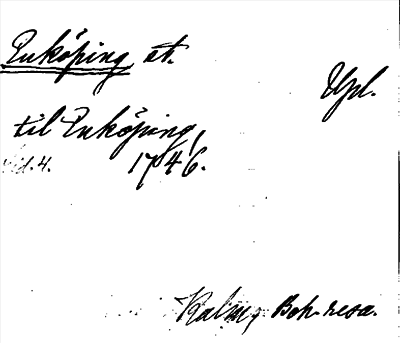 Enköping st.
Upl.
til Enköping,
sid. 4. 1746.
Kalm, Boh. resa.